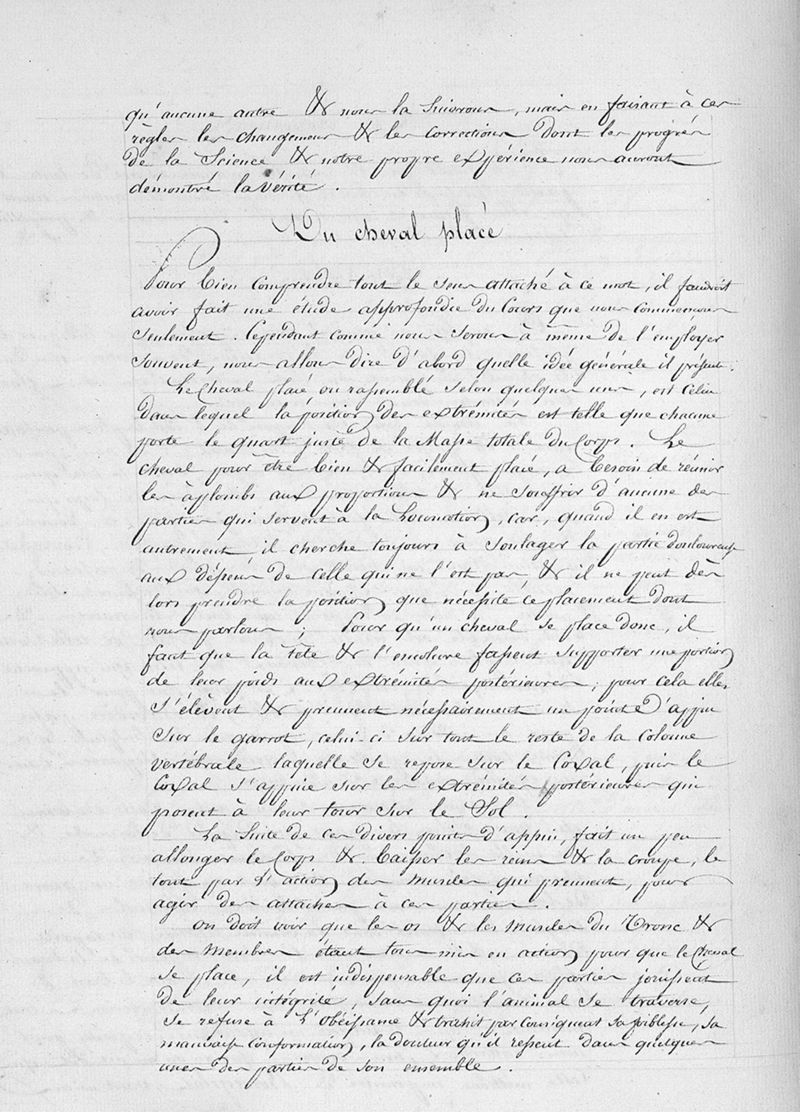 qu'aucune autre & nous la suivrons, mais en faisant à ces
règles les changemens & les corrections dont les progrès
de la Science & notre propre expérience nous auront
démontré la vérité.
Du cheval placé
Pour bien comprendre tout le sens attaché à ce mot, il faudroit
avoir fait une étude approfondie du Cours que nous commençons
seulement. Cependant comme nous serons à même de l'employer
souvent, nous allons dire d'abord quelle idée générale il présente.
Le Cheval placé, ou rassemblé selon quelques uns, est Celui
dans lequel la position des extrémités est telle que chacune
porte le quart juste de la Masse totale du Corps. Le
cheval pour être bien & facilement placé, a besoin de réunir
les àplombs aux proportions & ne souffrir d'aucune des
parties qui servent à la Locomotion, car, quand il en est
autrement, il cherche toujours à soulager la partie douloureuse
aux dépens de celle qui ne l'est pas, & il ne peut dès
lors prendre la position que nécessite ce placement dont
nous parlons; Pour qu'un cheval se place donc, il
faut que la tête & l'encolure fassent supporter une portion
de leur poids aux extrémités postérieures; pour cela elles
s'élèvent & prennent nécessairement un point d'appui
sur le garrot, celui-ci sur tout le reste de la Colonne
vertébrale laquelle se repose sur le Coxal, puis le
Coxal s'appuie sur les extrémités postérieures qui
posent à leur tour sur le Sol.
La suite de ces divers points d'appui, fait un peu
allonger le Corps & baisser les reins & la croupe, le
tout par l'action des muscles qui prennent, pour
agir des attaches à ces parties.
On doit voir que les os & les muscles du Tronc &
des membres étant tous mis en action pour que le Cheval
se place, il est indispensable que ces parties jouissent
de leur intégrité, sans quoi l'animal se traverse,
se refuse à l'Obéissance & trahit par conséquent sa faiblesse, sa
mauvaise Conformation, la douleur qu'il ressent dans quelques
unes des parties de son ensemble.